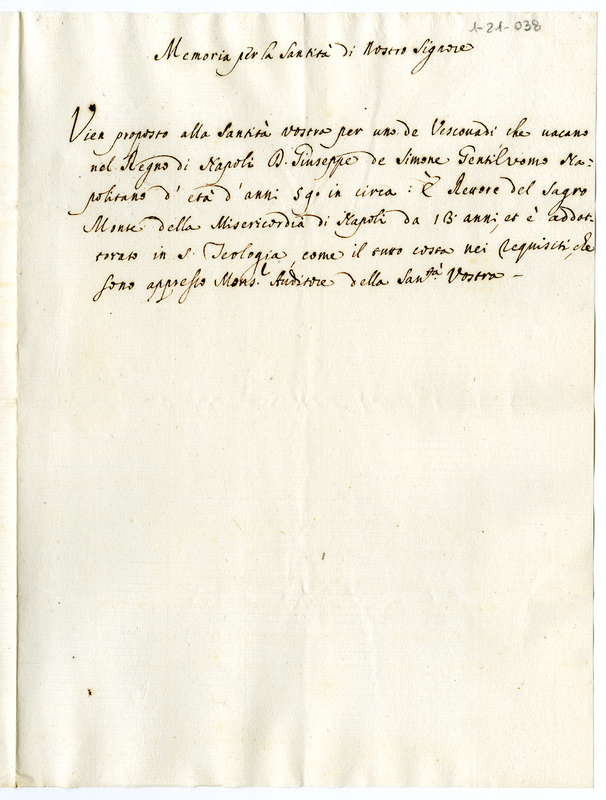 1-21-038
Memoria per la Santità di Nostro Signore
Vien proposto alla Santità vostra per uno de Vescovadi che vacano
nel Regno di Napoli D. Giuseppe de Simone Gentilvomo Na=
politano d' età d' anni 59. in circa : È Rettore del Sagro
Monte della Misericordia di Napoli da 13 anni, et è addot-
torato in S. Teologia, come il tutto costa nei requisiti, che
sono appresso Mons.r Auditore della San.tà Vostra -